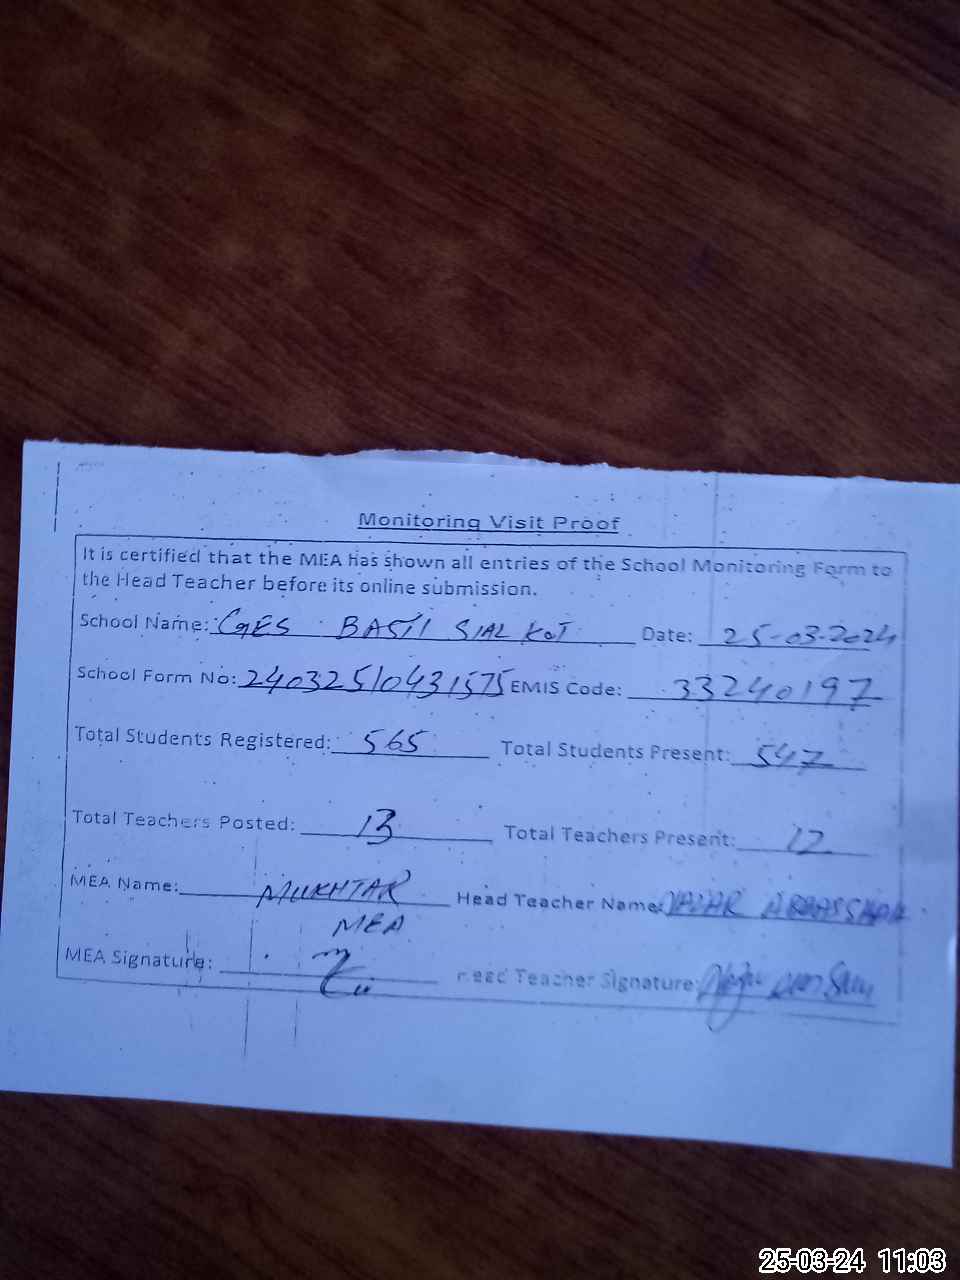 Monitoring Visit Proof
It is certified that the MEA has shown all entries of the School Monitoring Form to
the Head Teacher before its online submission.
School Name: GES BASTI SIAL KOT Date: 25-03-2024
School Form No: 24032510431575 EMIS Code: 33240197
Total Students Registered: 565 Total Students Present: 547
Total Teachers Posted: 13 Total Teachers Present: 12
MEA Name: MUKHTAR Head Teacher Name:
MEA
MEA Signature: Head Teacher Signature:
25-03-24 11:03